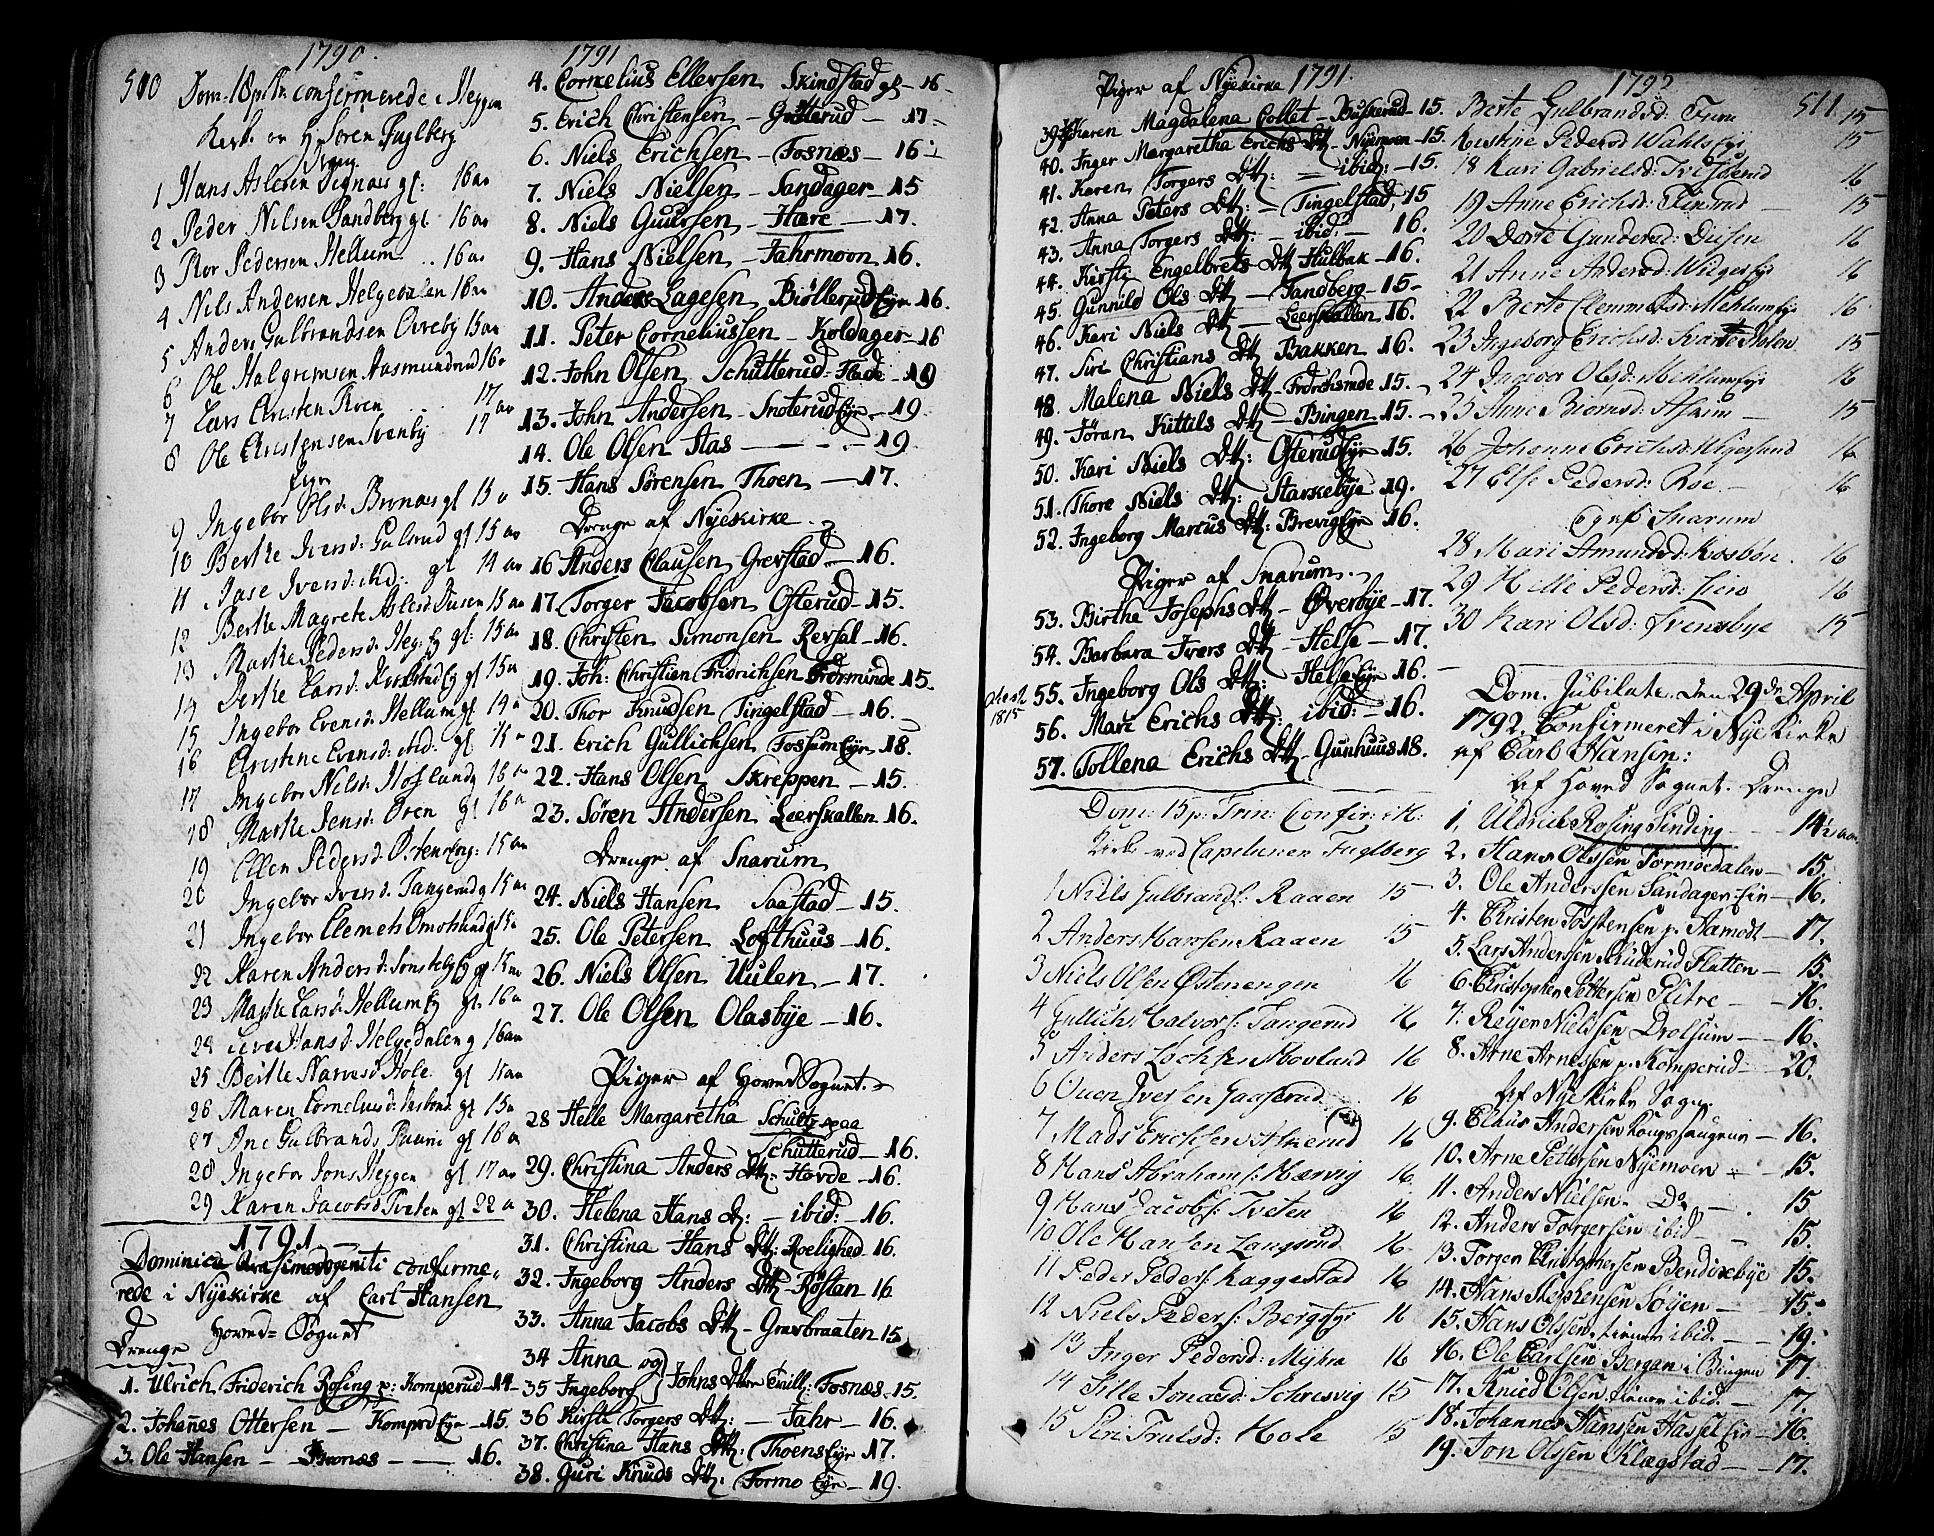 510
1790.
Dom. 18 p. Tr. confirmerede i Heggen
Kirke av H. Sören Fuglberg
1 Hans Aslesen Vegnæs gl: 16 aar
2 Peder Nilsen Sandberg gl. 16 aa
3 Roer Pedersen Hellum .. 16 aa
4 Nils Andersen Helgedalen 16 aa
5 Anders Gulbrandsen Overby 15 aa
6 Ole Halgremsen Aasmundrud 16 a
7 Lars Christen Kven 17
8 Ole Christensen Svenby 17 aa
Pigr
9 Ingebor Olsd: Brunæs gl 15 a
10 Berthe Iversd: Gulsrud gl 15 aa
11 Aase Iversd: ibid: gl 14 aa
12 Berthe Magrete Aslesd: Dusen 15 aa
13 Marthe Pedersd: Heg: Ey gl: 15 aa
14 Berthe Larsd: Kirkstad Ey gl 15 aa
15 Ingebor Evensd: Hellum gl 19 a
16 Christine Evensd: ibid: gl 15 a
17 Ingebor Nilsd: Hofland gl 16 a
18 Marthe Jensd: Oren gl 16 a
19 Ellen Pedersd: Ostensborg: 15 aa
20 Ingebor Iversd: Tangerud gl 15 aa
21 Ingebor Clemets Omholtrud gl 15
22 Karen Andersd: Sonsteby Ey gl 15 aa
23 Marthe Larsd: Hellum Ey gl. 16 a
24 Hansd: Helgedalen gl 16 aa
25 Berthe Narvesd: Hole gl 15 aa
26 Maren Cornelius d: gl 15 a
27 Ane Gulbrands gl 16 a
28 Ingebor Jons Heggen gl 17 aa
29 Karen Jacobsd: Tveten gl 22 a
1791
Dominica Qvasimodogeniti confirme-
rede i Nyekirke af Carl Hansen
Hoved-Sognet
Drenge
1. Ulrich Friderich Rosing p: Komperud 14
2. Johanes Ottersen — Komprd Eye — 15.
3. Ole Hansen — Bronæs — 16.
1791
4. Cornelius Ellersen Skindstad gl — 16 -
5. Erich Christensen — Gutterud — 17 -
6. Niels Erichsen — Fosnæs — 16 -
7. Niels Nielsen — Sandager — 15
8. Niels Guursen — Hære — 17.
9. Hans Nielsen — Fahrmoon 16.
10. Anders Lagesen Biöllerud Eye 16.
11. Peter Corneliussen — Koldager — 16
12. John Olsen Schutterud: Flade — 19
13. John Andersen — Snoterud Eye — 19.
14. Ole Olsen Aas — 19.
15. Hans Sörensen Thoen — 17.
Drenge af Nyekirke
16 Anders Clausen Grevstad — 16.
17. Torger Jacobsen Osterud — 15.
18. Christen Simonsen Revsal — 16.
19. Joh: Christian Fridrichsen Frörminde 15.
20. Thor Knudsen Tingelstad — 16.
21. Erich Gullichsen Fossum Eye 18.
22. Hans Olsen Skreppen — 15.
23. Sören Andersen Leerskallen 16.
Drenge af Snarum
24. Niels Hansen Saastad — 15.
25. Ole Petersen Lofthuus — 16.
26. Niels Olsen Uulen — 17.
27. Ole Olsen Olasbÿe — 16.
Piger af Hoved Sognet.
28 Helle Margaretha Schultz paa
Schutterud — 16.
29. Christina Anders Dtt: Hovde — 16.
30. Helena Hans D: — ibid: — 16.
31. Christina Hans Dtt: Roelighed 16.
32. Ingeborg Anders Dtt Röstan 16
33. Anna Jacobs Dtt — Gravbraaten 15
34 Anna og
35 Ingeborg } Johns Dttre Tvill: Fosnæs 15.
36 Kirsti Torgers Dtt: — Jahr — 16.
37. Christina Hans Dtt: Thoens Eye 17.
38. Guri Knuds Dtt: Formo Eye — 19.
1791.
Piger af Nyekirke
39. Karen Magdalena Collet — Buskerud 15.
40. Inger Margaretha Erichs Dtt — Nyemoen — 15.
41. Karen Torgers Dtt: — ibid: — 15.
42. Anna Peters Dtt: — Tingelstad, 15
43. Anna Torgers Dtt: — ibid: — 16.
44. Kirsti Engelbrets Dtt Hübbak — 16.
45. Gunnild Ols Dtt — Tandberg — 15 -
46. Kari Niels Dtt — Leerskallen 16.
47. Siri Christians Dtt Bakken 16.
48. Malena Niels Dtt Frörchsmde 15.
49. Jöran Kittils Dtt — Bingen 15. -
50. Kari Niels Dtt: Osterud Eye 15.
51. Thore Niels Dtt: Starkebÿe 19.
52. Ingeborg Marcus Dtt: Brevig Eye 16.
Piger af Snarum.
53. Birthe Josephs Dtt — Overbÿe — 17.
54. Barbara Ivers Dtt — Helse — 17.
55. Ingeborg Ols Dtt: — Helse Eye 16.
1815
56. Mari Erichs Dtt: ibid: — 16.
57. Tollena Erichs Dtt — Gunhuus 18.
Dom: 15 p: Trin: Confir: i H:
Kirke ved Capelanen Fuglberg
1 Niels Gulbrands: Raaen 15
2 Anders Hansen Raaen 15
3 Niels Olsen Østenengen 16
4 Gullich Halvors: Tangerud 16
5 Anders Lochsen Hovland 16
6 Ouen Ivesen Gaaserud 16
7 Mads Erichsen Askerud 16
8 Hans Abrahams: Hærvig 16
9 Hans Jacobs: Tveten 16
10 Ole Hansen Langerud 16
11 Peder Peders: Kaggestad 16
12 Niels Peders: Bergseye 16
13 Inger Pedersd: Mÿbra 16
14 Sille Jonæd: Schresvig 15
15 Siri Trulsd: Hole 15
1792
511
Berte Gulbrandsd: Frem 15
Kirstine Pedersd: Wahlseye 15
18 Kari Gabrielsd: 16
19 Anne Erichsd: Finrud 15
20 Dorte Gundersd: Deisen 16
21 Anne Andersd: Widgerseye 16
22 Berte Clemmetsd: Mehlumseye 16
23 Ingeborg Erichsd: Svarte Dalen 15
24 Ingebor Olsd: Mehlumseye 16
25 Anne Biörnsd: Askim — 15
26 Johanne Erichsd: Wigerfund 16
27 Else Pedersd: Roe — 16
Snarum
28 Mari Amundsd: Kosböre 16
29 Helle Pedersd: Lien 16
30 Kari Olsd: Svensbye 15
Dom. Jubilate. den 29de April
1792. Confirmeret i Nye Kirke
af Carl Hansen:
Af Hoved Sognet. Drenge
1. Uldrich Rosing Finding — 14½ aar
2. Hans Olssen Tormoedalen — 15.
3. Ole Anderssen Sandager: Eie — 16.
4. Christen Tostensen p. Aamodt — 17.
5. Lars Anderssen Skuterud Flatten — 15.
6. Christopher Pettersen Flitre — 16.
7. Reyer Nielssen Drolsum — 16.
8. Arne Arnessen p. Komperud — 20.
Af NyeKirke Sogn.
9. Claus Andersen Kongshougeie — 16.
10. Arne Pettersen Nyemoen — 15.
11. Anders Nielsen. Do — . 15
12. Anders Torgersen ibid — 15
13. Torger Christophersen Bendixebye 15.
14. Hans Stephensen Söyen — 15.
15. Hans Olssen, tiener ibid. — 19.
16. Ole Carlsen Bergan i Bingen 17.
17. Knud Olsen tiener ibid. — 17.
18. Johannes Hanssen Hassel Eie — 16.
19. Jon Olssen Klægstad — 17.